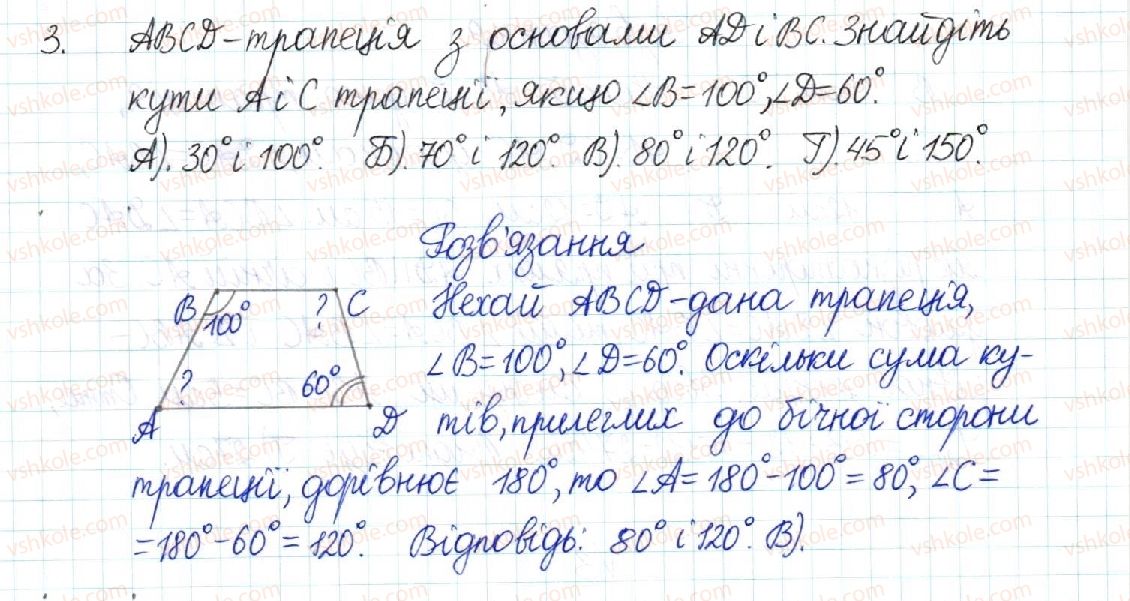 3. ABCD-трапеція з основами AD і BC. Знайдіть
кути A і C трапеції, якщо ∠B=100°, ∠D=60°.
А). 30° і 100°. Б). 70° і 120°. В). 80° і 120°. Г). 45° і 150°.
Розв'язання
B 100° ? C
? 60°
A D
Нехай ABCD-дана трапеція,
∠B=100°, ∠D=60°. Оскільки сума ку-
тів, прилеглих до бічної сторони
трапеції, дорівнює 180°, то ∠A=180°-100°=80°, ∠C=
=180°-60°=120°. Відповідь: 80° і 120°. В).
vshkole.com